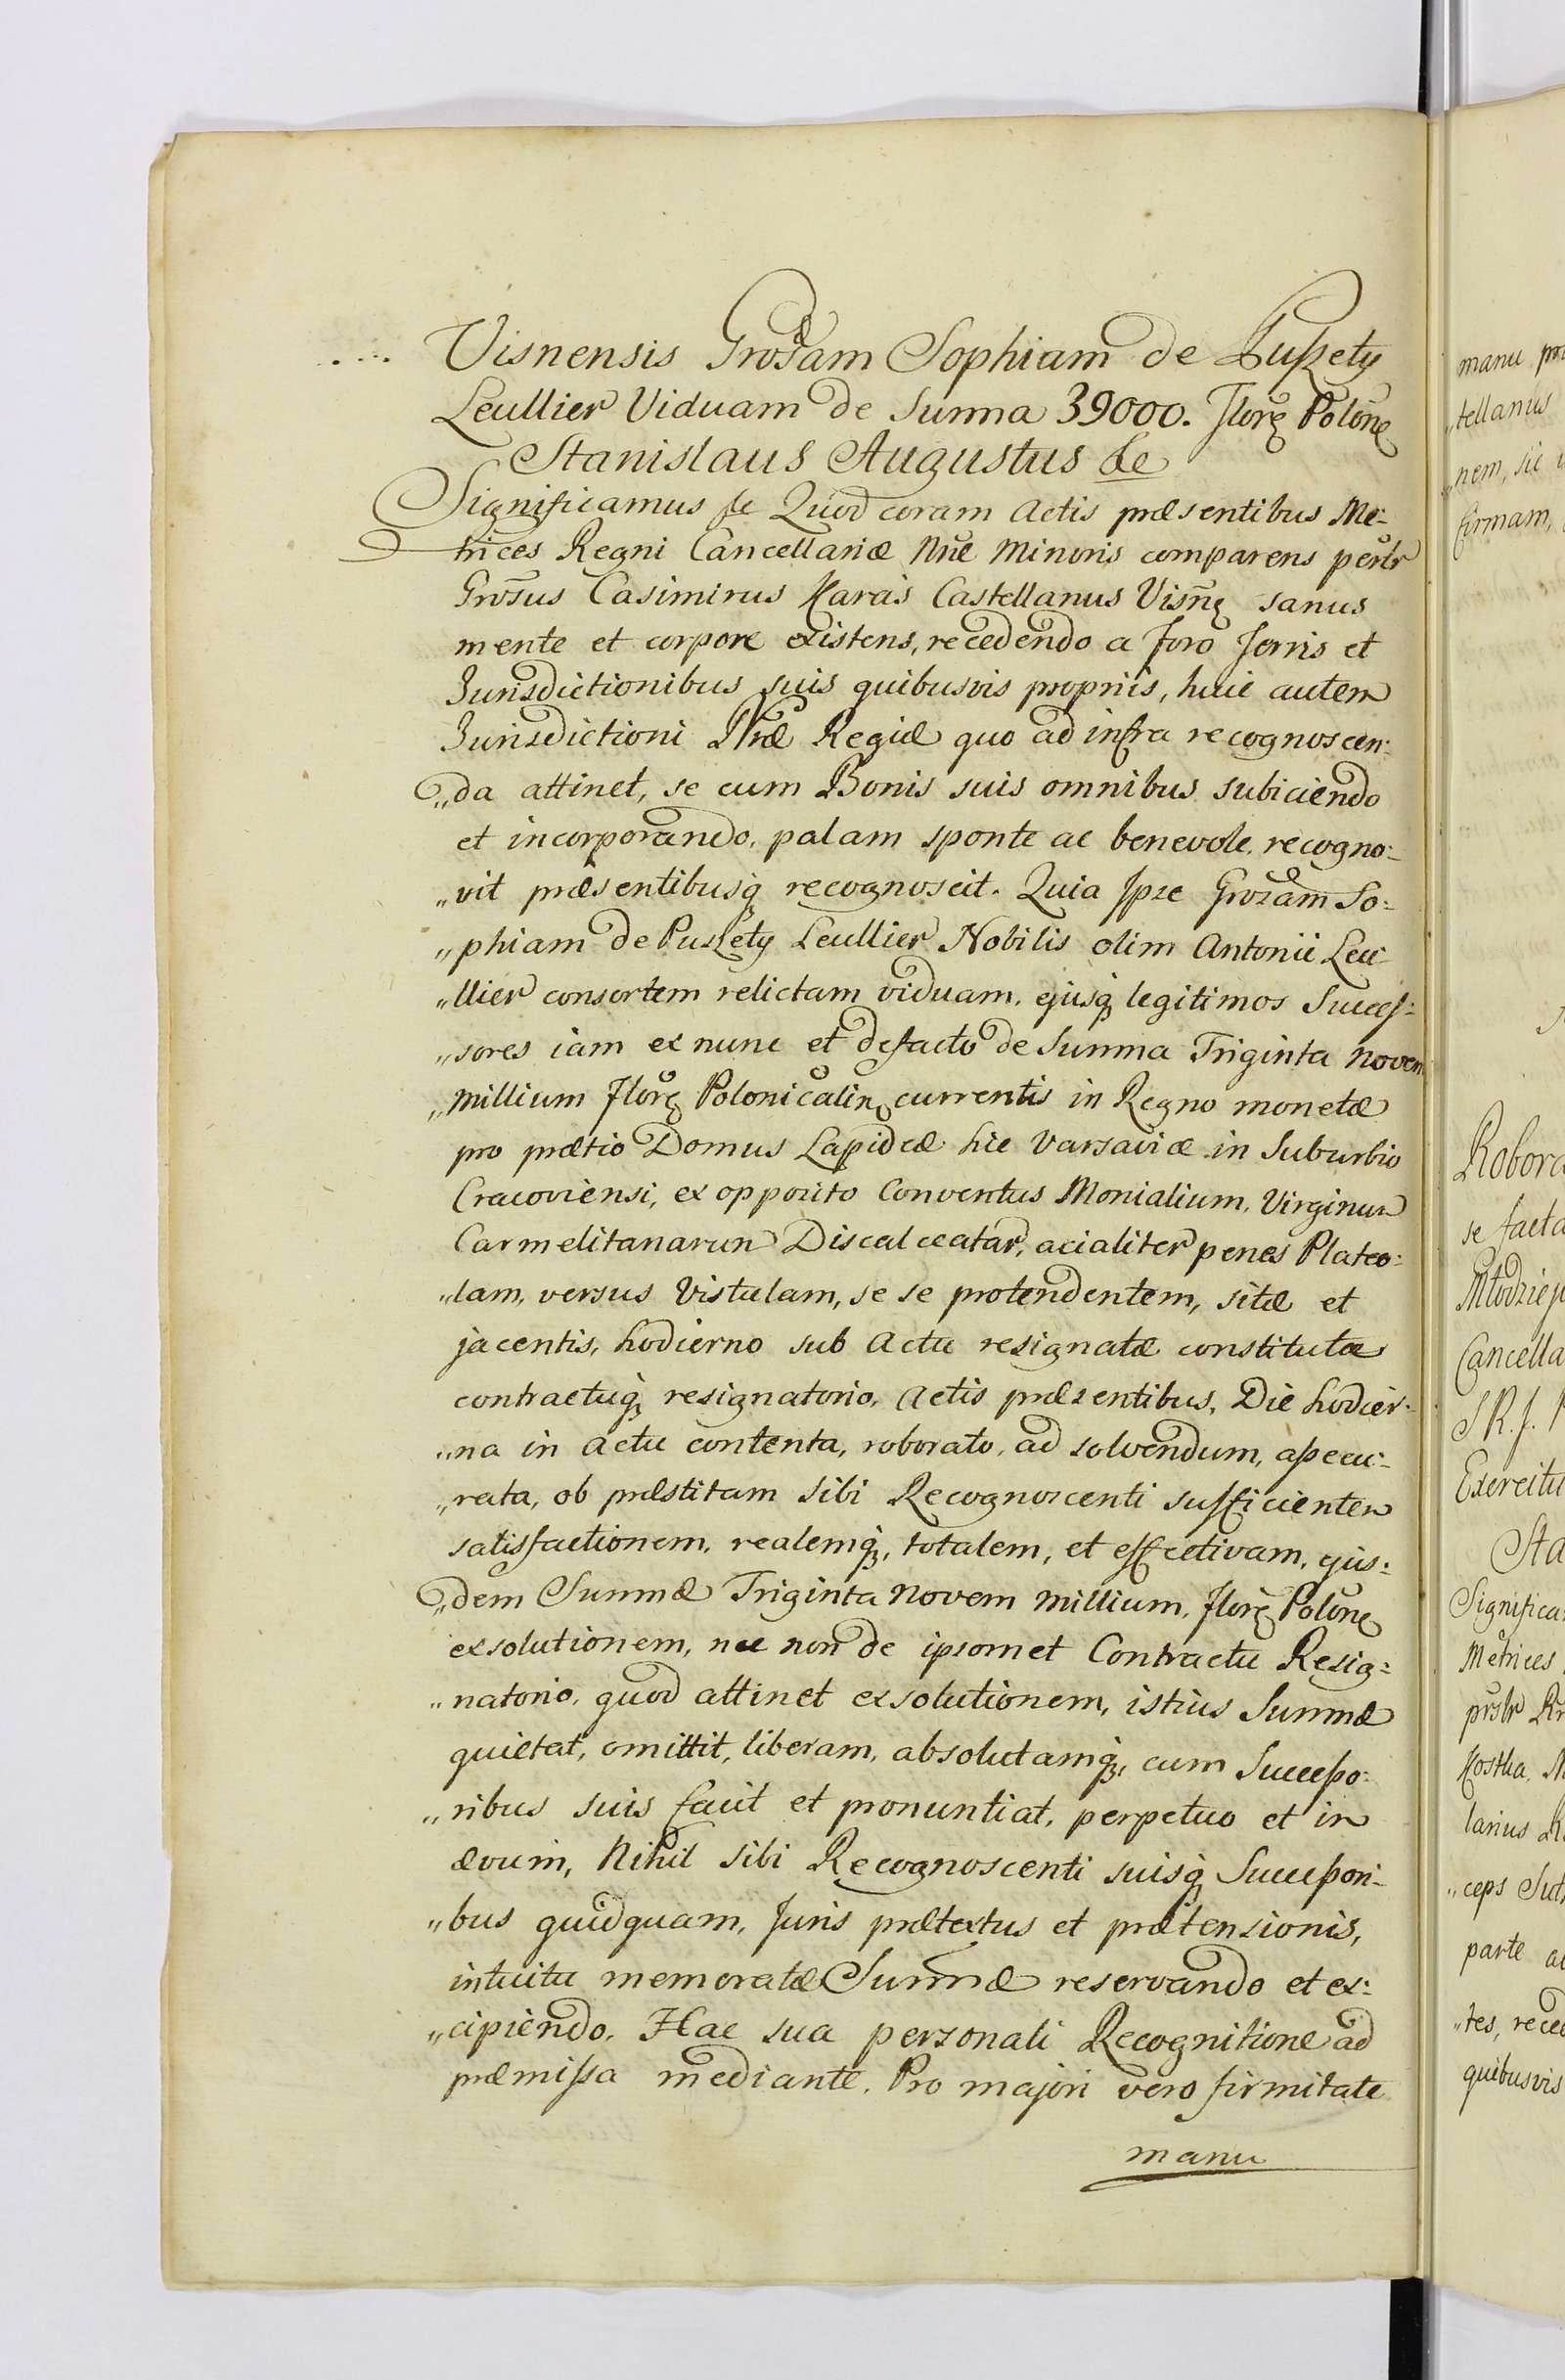 Visnensis Grosam Sophiam de Puszety
Leullier Viduam de Summa 39000. Flor. Polon.
Stanislaus Augustus &c
Significamus &c Quod coram Actis præsentibus Me:
trices Regni Cancellariæ Nr̃æ Minoris comparens perslr
Gros̃us Casimirus Karaś Castellanus Visñ. sanus
mente et corpore existens, recedendo a foro Terris et
Jurisdictionibus suis quibusvis propriis, huic autem
Jurisdictioni Nr̃æ Regiæ quo ad infra recognoscen:
„da attinet, se cum Bonis suis omnibus subiciendo
et incorporando, palam sponte ac benevole, recogno:
„vit præsentibusq; recognoscit. Quia Ipse Grosam So:
„phiam de Puszety Leullier Nobilis olim Antonii Leu:
„llier consortem relictam viduam, ejusq; legitimos Succes:
„sores iam ex nunc et de facto de Summa Triginta Novem
„Millium Flor. Polonicalin. currentis in Regno monetæ
pro prætio Domus Lapideæ hic Varsaviæ in Suburbio
Cracoviensi, ex opposito Conventus Monialium, Virginum
Carmelitanarum Discalceatar, acialiter penes Plateo:
„lam, versus Vistulam, se se protendentem, sitæ et
jacentis, hodierno sub Actu resignatæ constitutæ
contractuq; resignatorio, Actis præsentibus, Die hodier:
„na in actu contenta, roborato, ad solvendum, assecu:
„rata, ob præstitam sibi Recognoscenti sufficientem
satisfactionem, realemq;, totalem, et effectivam, ejus:
„dem Summæ Triginta Novem Millium, Flor. Polon.
exsolutionem, nec non de ipsomet Contractu Resig:
„natorio, quod attinet exsolutionem, istius Summæ
quietat, omittit, liberam, absolutamq;, cum Successo:
„ribus suis facit et pronuntiat, perpetuo et in
ævum, Nihil sibi Recognoscenti suisq; Successori:
„bus quidquam, Juris prætextus et prætensionis,
intuitu memoratæ Summæ reservando et ex:
„cipiendo. Hac sua personali Recognitione ad
præmissa mediante. Pro majori vero firmitate
manu
manu
„tellanus
„nem, sic
firmam,
se facta
Cancella
S R. J.
Exercitu
Sta
Significa
Metrices
Kostka,
larius
„ceps
parte
„tes, reced
quibusvis